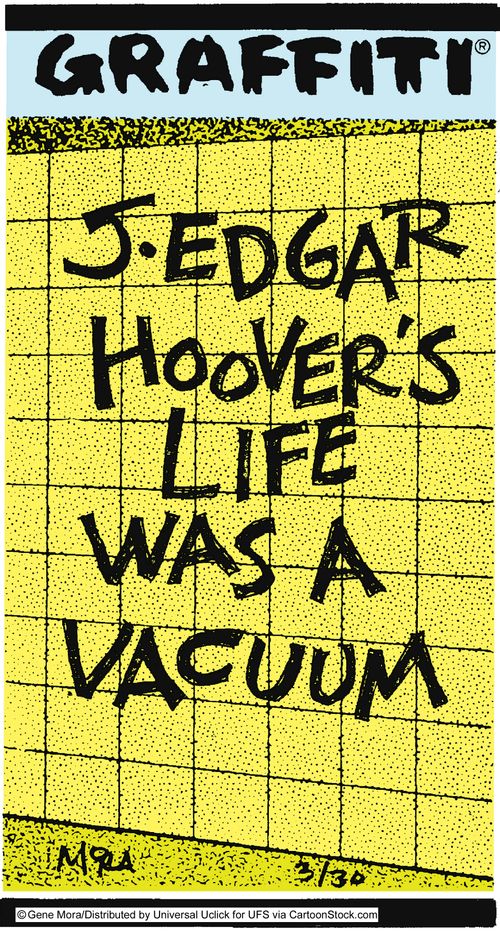 GRAFFITI®
J. EDGAR
HOOVER'S
LIFE
WAS A
VACUUM
3/30
© Gene Mora/Distributed by Universal Uclick for UFS via CartoonStock.com